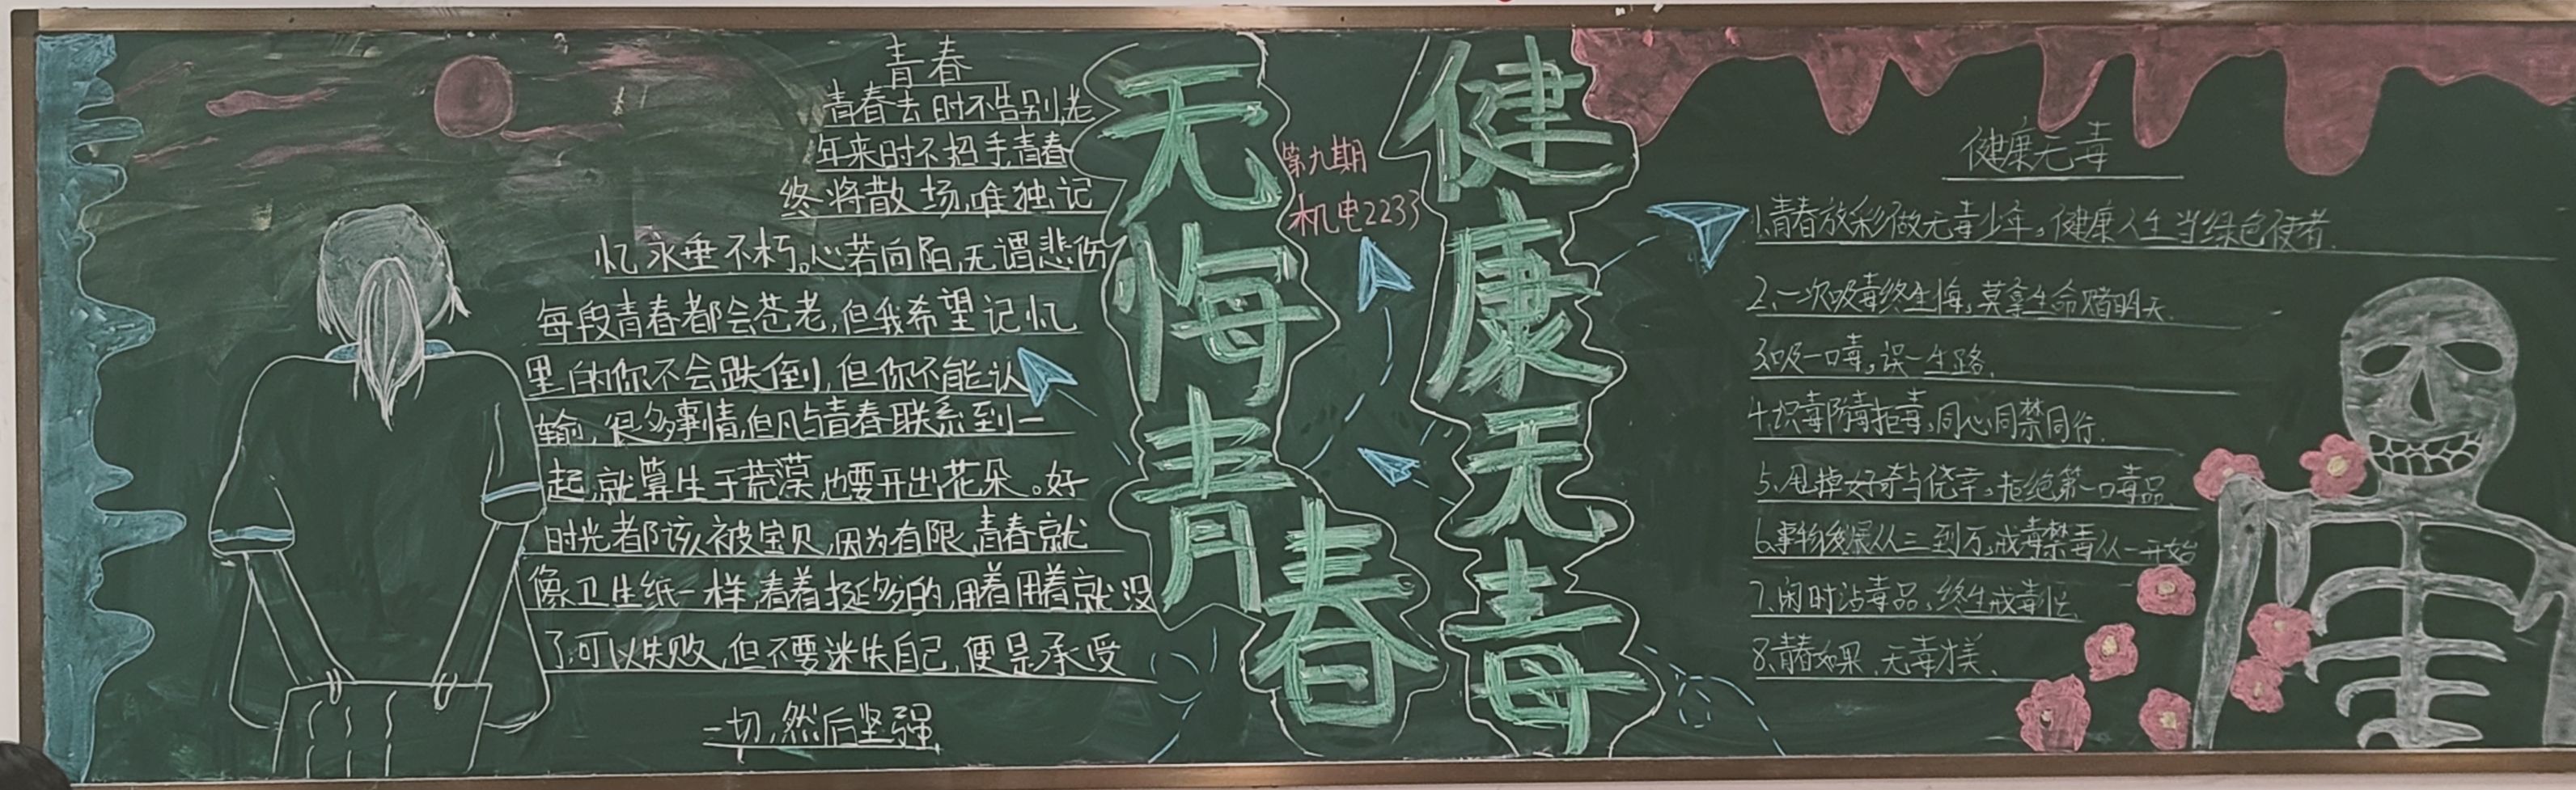 青春
青春去时不告别,老
年来时不招手,青春
终将散场,唯独记
忆永垂不朽。心若向阳,无谓悲伤
每段青春都会苍老,但我希望记忆
里的你不会跌倒,但你不能认
输,很多事情,但凡与青春联系到一
起,就算生于荒漠也要开出花朵。好
时光都该被宝贝,因为有限,青春就
像卫生纸一样,看着挺多的,用着用着就没
了,可以失败,但不要迷失自己,便是承受
一切,然后坚强
无悔青春
第九期
机电2233
健康无毒
健康无毒
1.青春放彩做无毒少年。健康人生当绿色使者.
2、一次吸毒终生悔,莫拿生命赌明天.
3.吸一口毒,误一生路.
4.识毒防毒拒毒,同心同禁同行.
5、甩掉好奇与侥幸,拒绝第一口毒品.
6.事物发展从三到万,戒毒禁毒从一开始
7.闲时沾毒品,终生戒毒忙
8.青春如果、无毒才美、